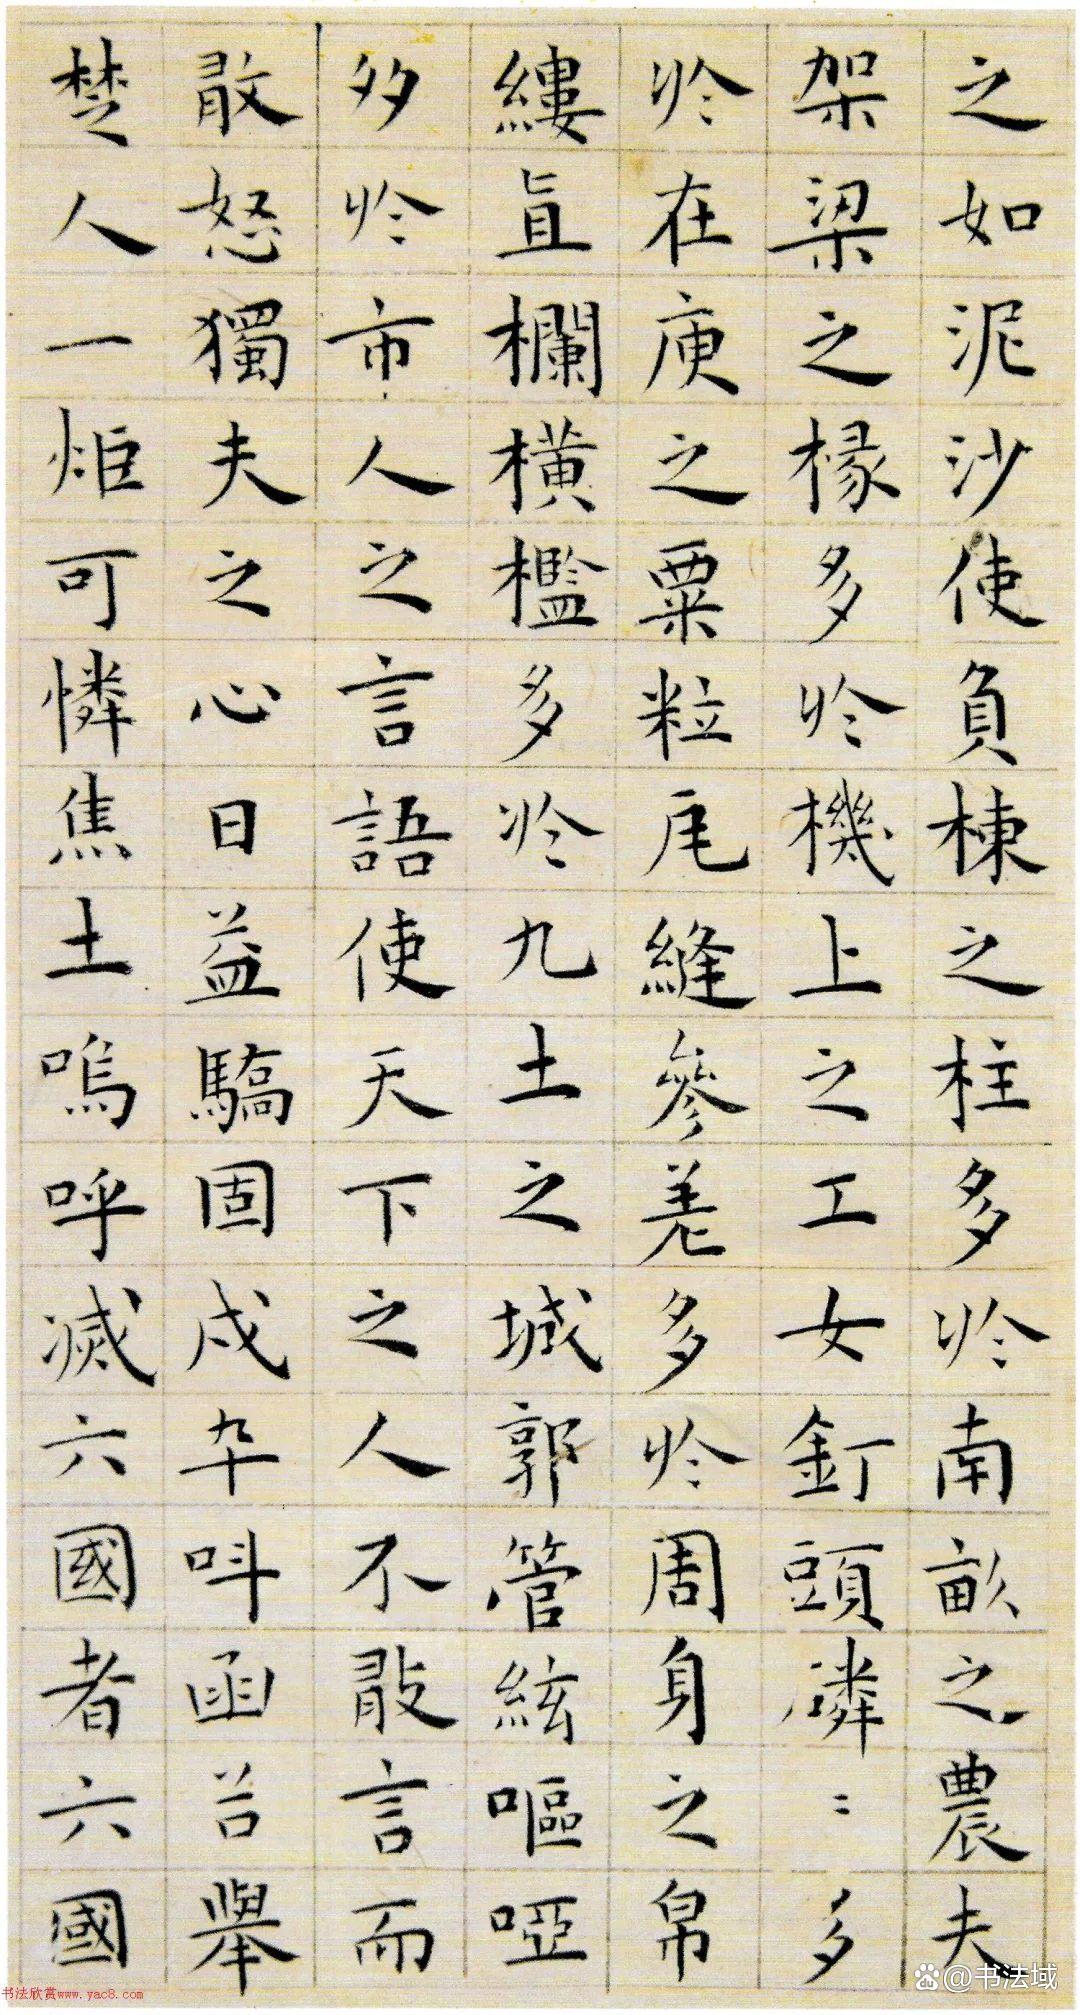 之如泥沙使負棟之柱多於南畝之農夫
架梁之椽多於機上之工女釘頭磷〻多
於在庾之粟粒瓦縫參差多於周身之帛
縷直欄橫檻多於九土之城郭管絃嘔啞
多於市人之言語使天下之人不敢言而
敢怒獨夫之心日益驕固戍卒呌函谷舉
楚人一炬可憐焦土嗚呼滅六國者六國
书法欣赏www.yac8.com
@书法域